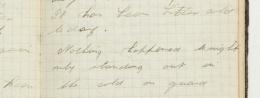 It has been bitter cold
today.
Nothing happened tonight
only standing out in
the cold on guard